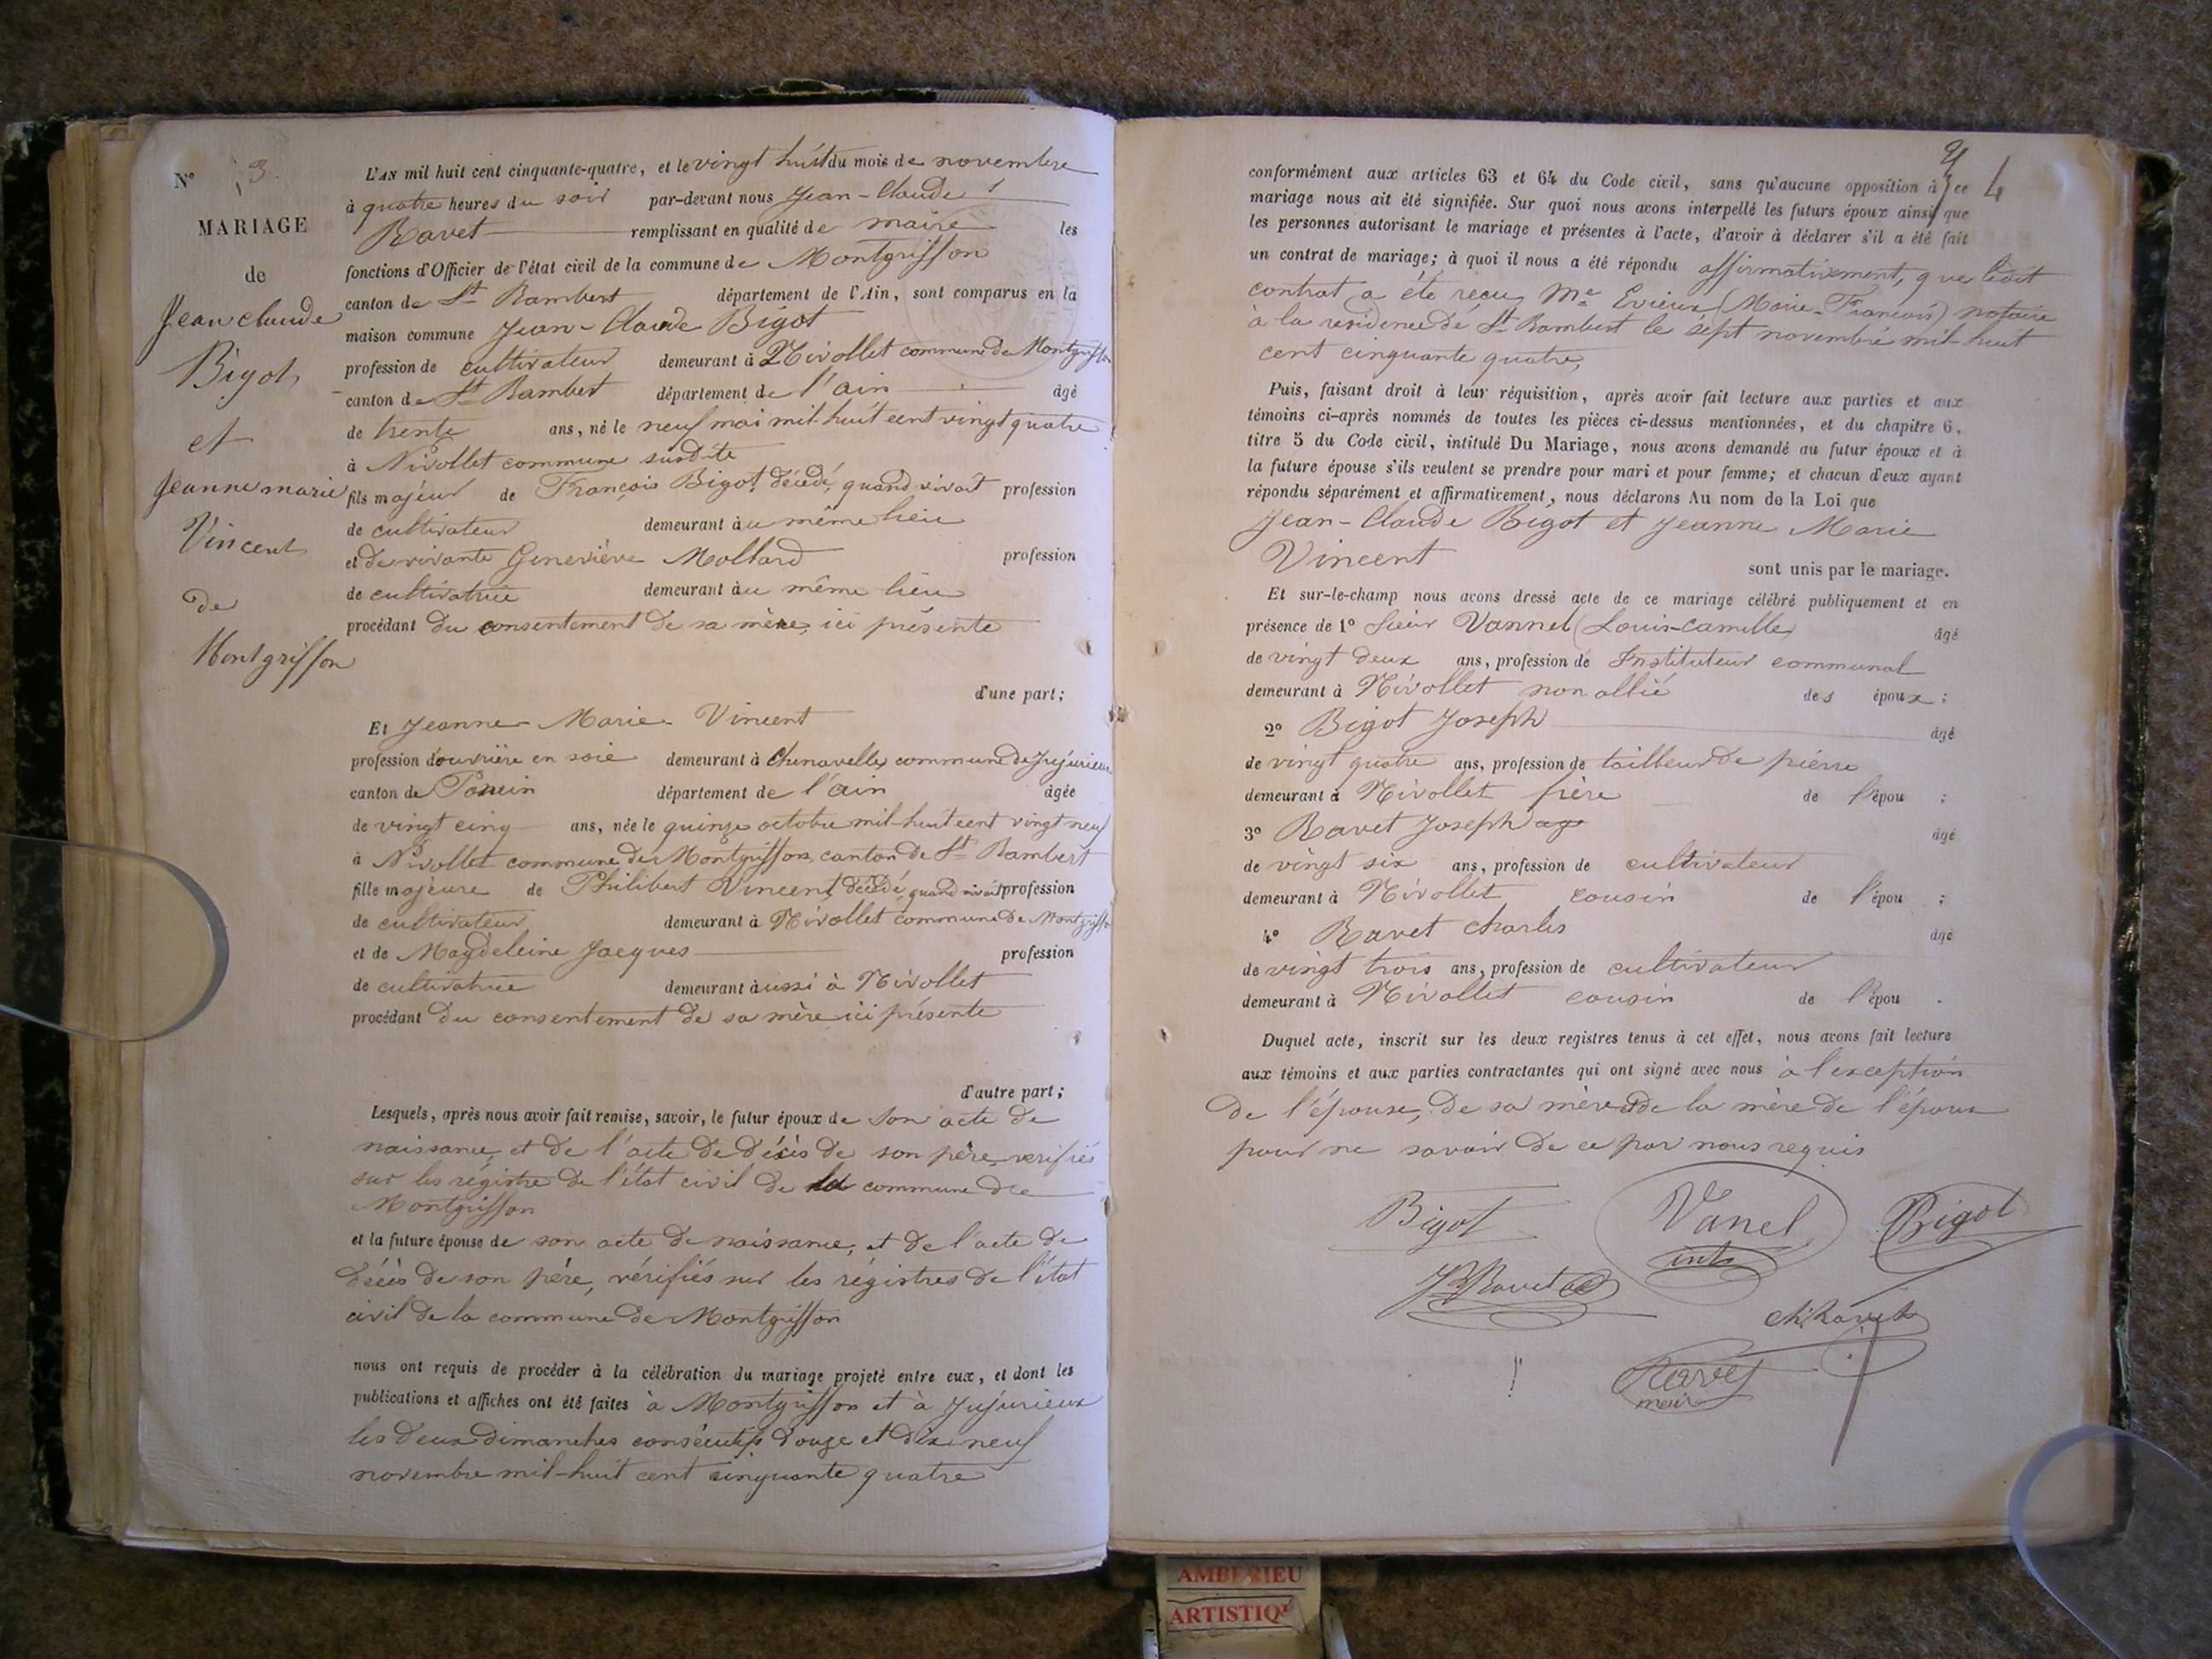 N° 3
MARIAGE
de
Jean claude
Bigot
et
Jeanne marie
Vincent
de
Montgriffon
L'AN mil huit cent cinquante-quatre, et le vingt huit du mois de novembre
à quatre heures du soir par-devant nous Jean-Claude
Ravet remplissant en qualité de maire les
fonctions d'Officier de l'état civil de la commune de Montgriffon
canton de St Rambert département de l'Ain, sont comparus en la
maison commune Jean-Claude Bigot
profession de cultivateur demeurant à Nivollet commune de Montgriffon
canton de St Rambert département de l'ain âgé
de trente ans, né le neuf mai mil huit cent vingt quatre
à Nivollet commune susdite
fils majeur de François Bigot, décédé, quand vivait profession
de cultivateur demeurant àu même lieu
et de vivante Geneviève Mollard profession
de cultivatrice demeurant àu même lieu
procédant du consentement de sa mère, ici présente
d'une part;
Et Jeanne-Marie Vincent
profession d'ouvrière en soie demeurant à Chenavelle, commune de Jujurieux
canton de Poncin département de l'ain âgée
de vingt cinq ans, née le quinze octobre mil-huit cent vingt neuf
à Nivollet commune de Montgriffon, canton de St Rambert
fille majeure de Philibert Vincent, décédé, quand vivait profession
de cultivateur demeurant à Nivollet commune de Montgriffon
et de Magdeleine Jacques profession
de cultivatrice demeurant àussi à Nivollet
procédant du consentement de sa mère ici présente
d'autre part;
Lesquels, après nous avoir fait remise, savoir, le futur époux de son acte de
naissance, et de l'acte de décès de son père, verifiés
sur les régistre de l'état civil de la commune de
Montgriffon
et la future épouse de son acte de naissance, et de l'acte de
décès de son père, vérifiés sur les régistres de l'état
civil de la commune de Montgriffon
nous ont requis de procéder à la célébration du mariage projeté entre eux, et dont les
publications et affiches ont été faites à Montgriffon et à Jujurieux
les deux dimanches consécutifs douze et dix neuf
novembre mil-huit cent cinquante quatre
4
conformément aux articles 63 et 64 du Code civil, sans qu'aucune opposition à ce
mariage nous ait été signifiée. Sur quoi nous avons interpellé les futurs époux ainsi que
les personnes autorisant le mariage et présentes à l'acte, d'avoir à déclarer s'il a été fait
un contrat de mariage; à quoi il nous a été répondu affirmativement, que ledit
contrat a été reçu Me Evieux (Marie-François) notaire
à la residence de St Rambert le sept novembre mil-huit
cent cinquante quatre,
Puis, faisant droit à leur réquisition, après avoir fait lecture aux parties et aux
témoins ci-après nommés de toutes les pièces ci-dessus mentionnées, et du chapitre 6,
titre 5 du Code civil, intitulé Du Mariage, nous avons demandé au futur époux et à
la future épouse s'ils veulent se prendre pour mari et pour femme; et chacun d'eux ayant
répondu séparément et affirmativement, nous déclarons Au nom de la Loi que
Jean-Claude Bigot et Jeanne Marie
Vincent sont unis par le mariage.
Et sur-le-champ nous avons dressé acte de ce mariage célébré publiquement et en
présence de 1° sieur Vannel (Louis-Camille) âgé
de vingt deux ans, profession de Instituteur communal
demeurant à Nivollet non allié des époux;
2° Bigot Joseph âgé
de vingt quatre ans, profession de tailleur de pierre
demeurant à Nivollet frère de l'épou ;
3° Ravet Joseph age âgé
de vingt six ans, profession de cultivateur
demeurant à Nivollet cousin de l'épou ;
4° Ravet Charles âgé
de vingt trois ans, profession de cultivateur
demeurant à Nivollet cousin de l'épou .
Duquel acte, inscrit sur les deux registres tenus à cet effet, nous avons fait lecture
aux témoins et aux parties contractantes qui ont signé avec nous à l'exception
de l'épouse, de sa mère et de la mère de l'époux
pour ne savoir de ce par nous requis
Bigot Vanel Bigot
intr
J Ravet
ch Ravet
Ravet
maire
AMBERIEU
ARTISTIQ